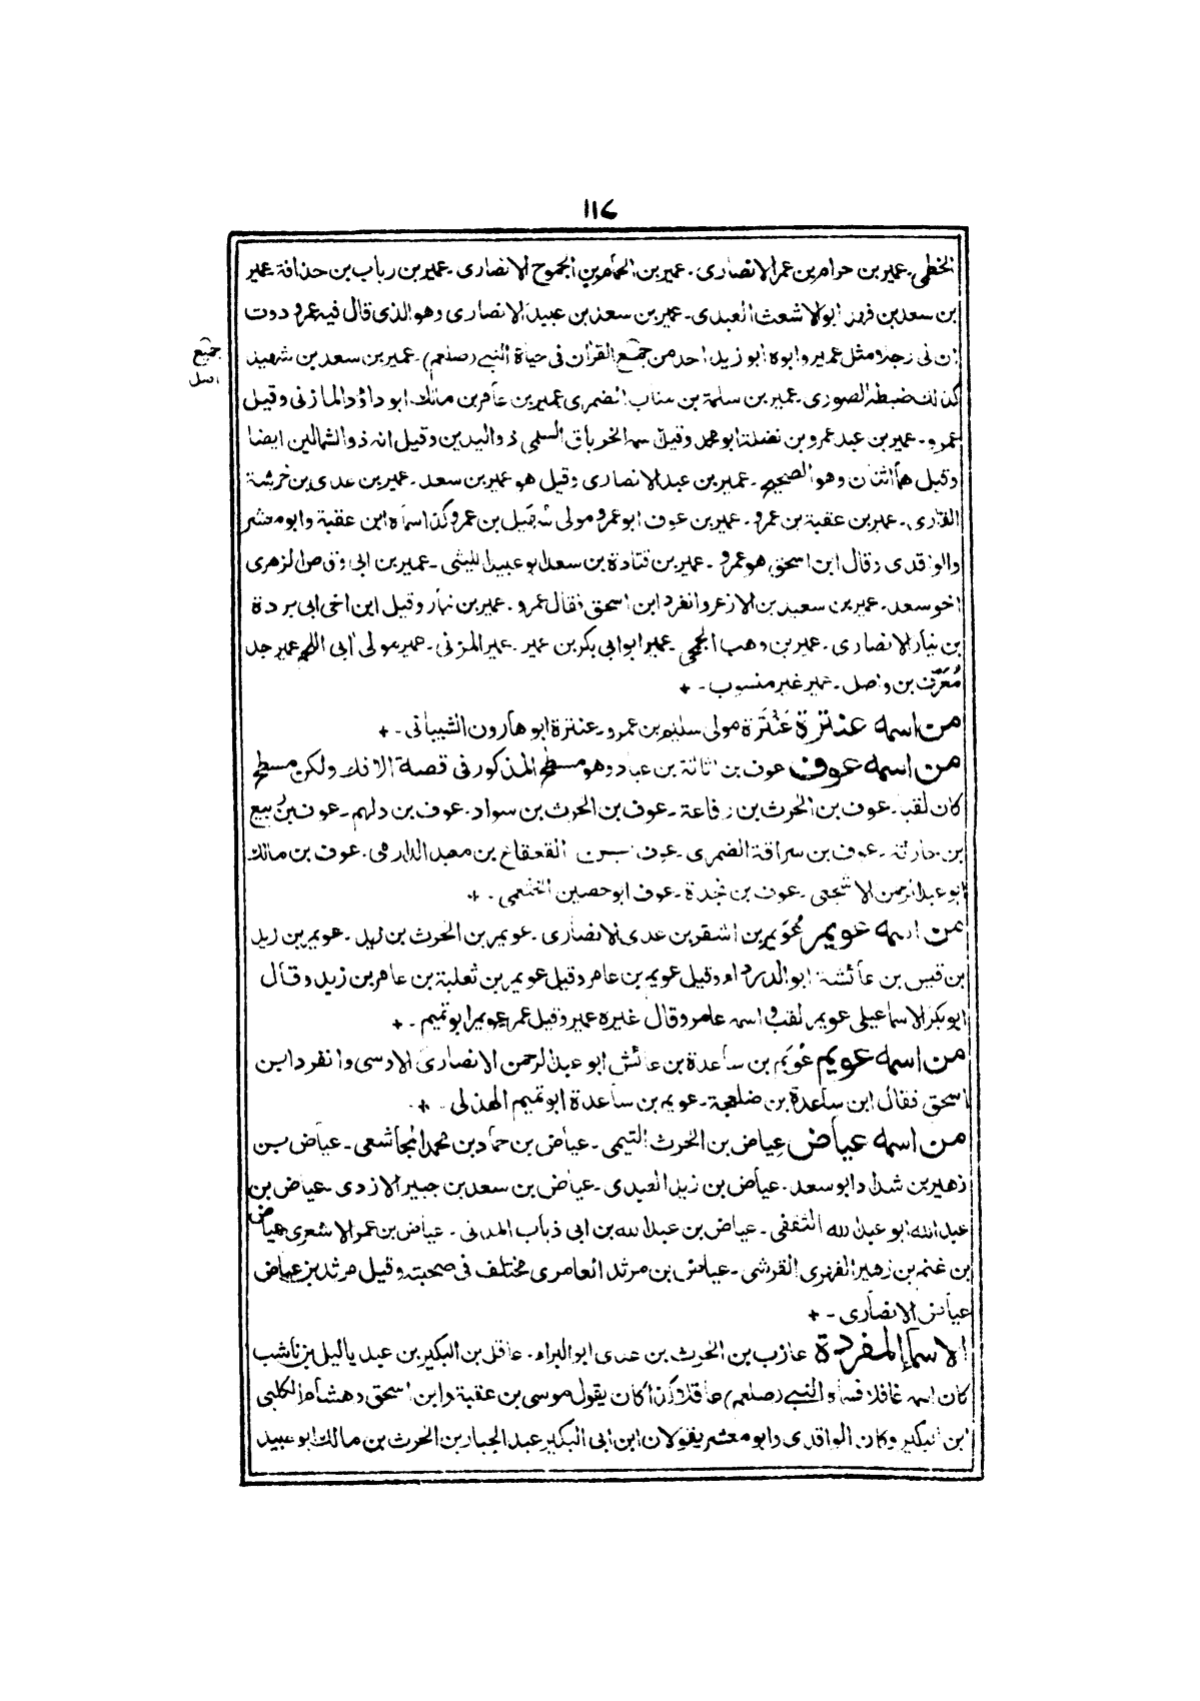 ١١٤
الخطمى ـ عمير بن حرام بن عمر الانصارى ـ عمير بن الحمام بن الجموح الانصارى ـ عمير بن رباب بن حذافة ـ عمير
بن سعد بن فهد ابو الاشعث العبدى ـ عمير بن سعد بن عبيد الانصارى وهو الذى قال فيه عمر وددت
ان لى رجلا مثل عمير وابوه ابو زيد احد من جمع القرآن فى حياة النبى (صلعم) ـ عمير بن سعد بن شهيد
جميع
اصل
كذلك ضبطه الصورى ـ عمير بن سلمة بن منتاب الضمرى عمير بن عامر بن مالك ابو داؤد المازنى وقيل
عمرو ـ عمير بن عبد عمرو بن نضلة ابو محمد وقيل اسمه الخرباق السلمى ذو اليدين وقيل انه ذو الشمالين ايضا
وقيل هما اثنان وهو الصحيح ـ عمير بن عبد الانصارى وقيل هو عمير بن سعد ـ عمير بن عدى بن خرشة
القارى ـ عمير بن عقبة بن عمرو ـ عمير بن عوف ابو عمرو مولى سهيل بن عمرو كذا سماه ابن عقبة وابو معشر
والواقدى وقال ابن اسحق هو عمرو ـ عمير بن قتادة بن سعد ابو عبيد الليثى ـ عمير بن ابى وقاص الزهرى
اخو سعد ـ عمير بن سعيد بن الازعر وانفرد ابن اسحق فقال عمرو ـ عمير بن نيار وقيل ابن اخى ابى بردة
بن نيار الانصارى ـ عمير بن وهب الجمحى ـ عمير ابو ابى بكر بن عمير ـ عمير المزنى ـ عمير مولى آبى اللحم عمير جد
مُعَرِّف بن واصل ـ عمير غير منسوب ـ +
من اسمه عنترة عَنْتَرَة مولى سليم بن عمرو ـ عنترة ابو هارون الشيبانى ـ +
من اسمه عوف عوف بن اثاثة بن عباد وهو مسطح المذكور فى قصة الافك ولكن مسطح
كان لقبا ـ عوف بن الحرث بن رفاعة ـ عوف بن الحرث بن سواد ـ عوف بن دلهم ـ عوف بن ربيع
بن حارثة ـ عوف بن سراقة الضمرى ـ عوف بن القعقاع بن معبد الدارمى ـ عوف بن مالك
ابو عبد الرحمن الاشجعى ـ عوف بن نجدة ـ عوف ابو حصين الخثعمى ـ +
من اسمه عويمر عُوَيمِر بن اشقر بن عدى الانصارى ـ عويمر بن الحرث بن زيد ـ عويمر بن زيد
بن قيس بن عائشة ابو الدرداء وقيل عويمر بن عامر وقيل عويمر بن ثعلبة بن عامر بن زيد وقال
ابو بكر الاسماعيلى عويمر لقب واسمه عامر وقال غيره عمير وقيل عمر عويمر ابو تميم ـ +
من اسمه عويم عُوَيم بن ساعدة بن عائش ابو عبد الرحمن الانصارى الاوسى وانفرد ابن
اسحق فقال ابن ساعدة بن ضلعجة ـ عويم بن ساعدة ابو تميم الهذلى ـ +
من اسمه عياض عِياض بن الحرث التيمى ـ عياض بن حماد بن محمد المجاشعى ـ عياض بن
زهير بن شداد ابو سعد ـ عياض بن زيد العبدى ـ عياض بن سعد بن جبير الازدى ـ عياض بن
عبد الله ابو عبد الله الثقفى ـ عياض بن عبد الله بن ابى ذباب المدنى ـ عياض بن عمر الاشعرى عياض
بن غنم بن زهير الفهرى القرشى ـ عياض بن مرثد العامرى مختلف فى صحبته وقيل مرثد بن عياض
عياض الانصارى ـ +
الاسماء المفردة عازب بن الحرث بن عدى ابو البراء ـ عاقل بن البكير بن عبد ياليل بن ناشب
كان اسمه غافلا فسماه النبى (صلعم) عاقلا وكذا كان يقول موسى بن عقبة وابن اسحق وهشام الكلبى
ابن البكير وكان الواقدى وابو معشر يقولان ابن ابى البكير عبد الجبار بن الحرث بن مالك ابو عبيد